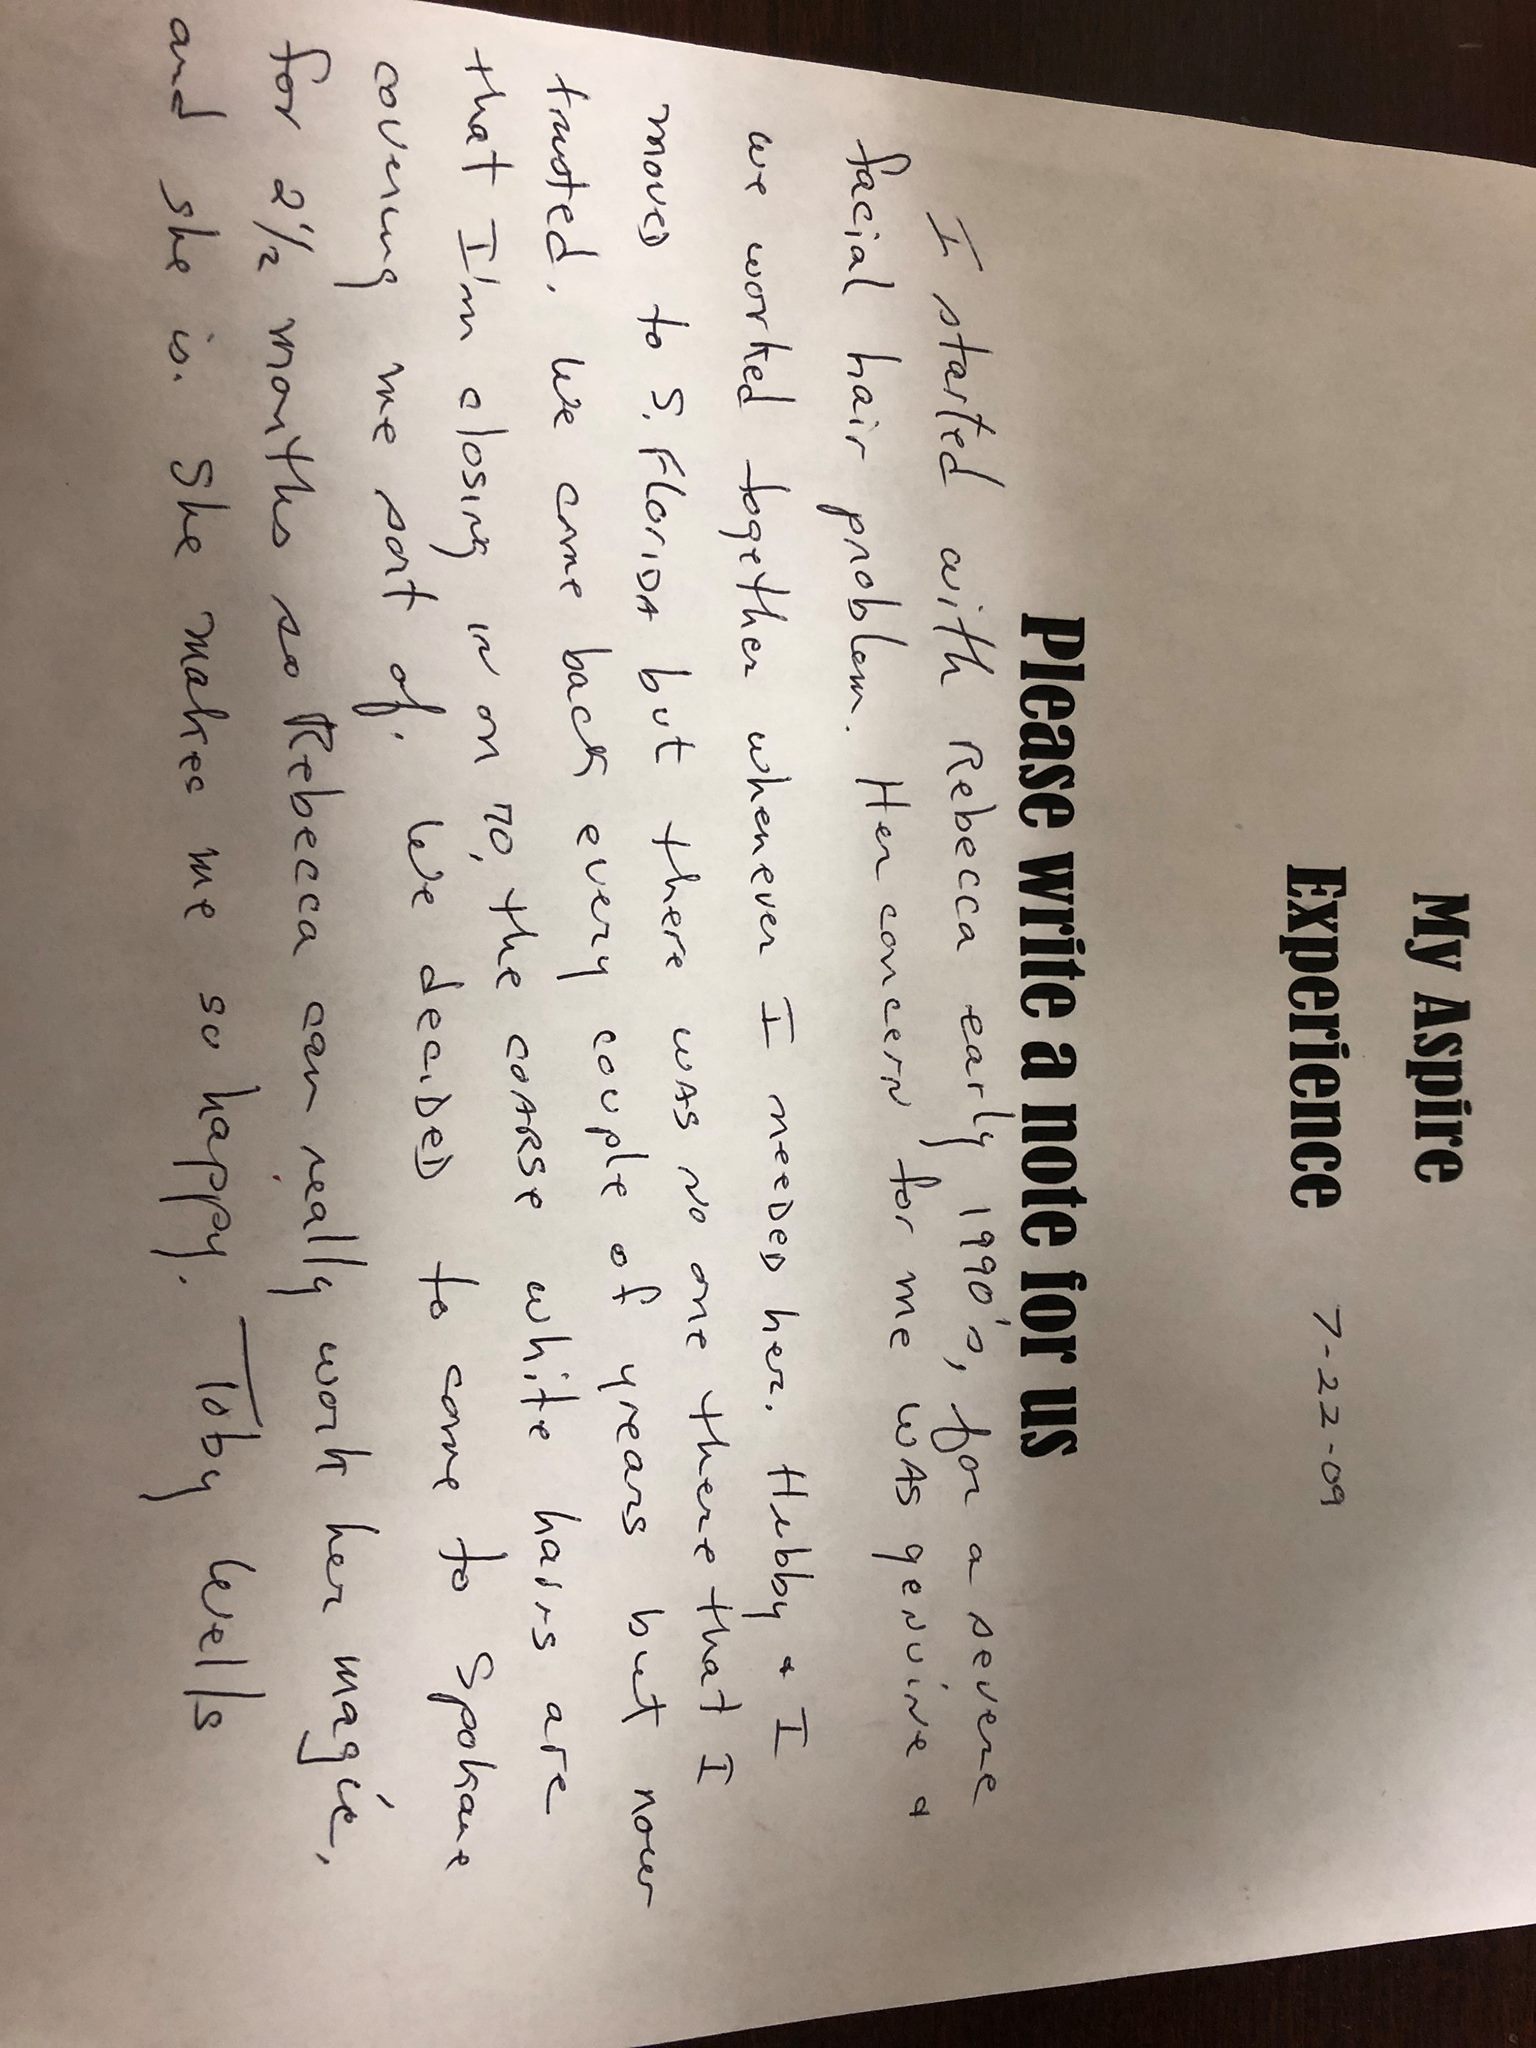 My Aspire
Experience 7-22-09
Please write a note for us
I started with Rebecca early 1990's, for a severe
facial hair problem. Her concern for me was genuine &
we worked together whenever I needed her. Hubby & I
moved to S. Florida but there was no one there that I
trusted. We came back every couple of years but now
that I'm closing in on 70, the coarse white hairs are
covering me sort of. We decided to come to Spokane
for 2½ months so Rebecca can really work her magic,
and she is. She makes me so happy. Toby Wells